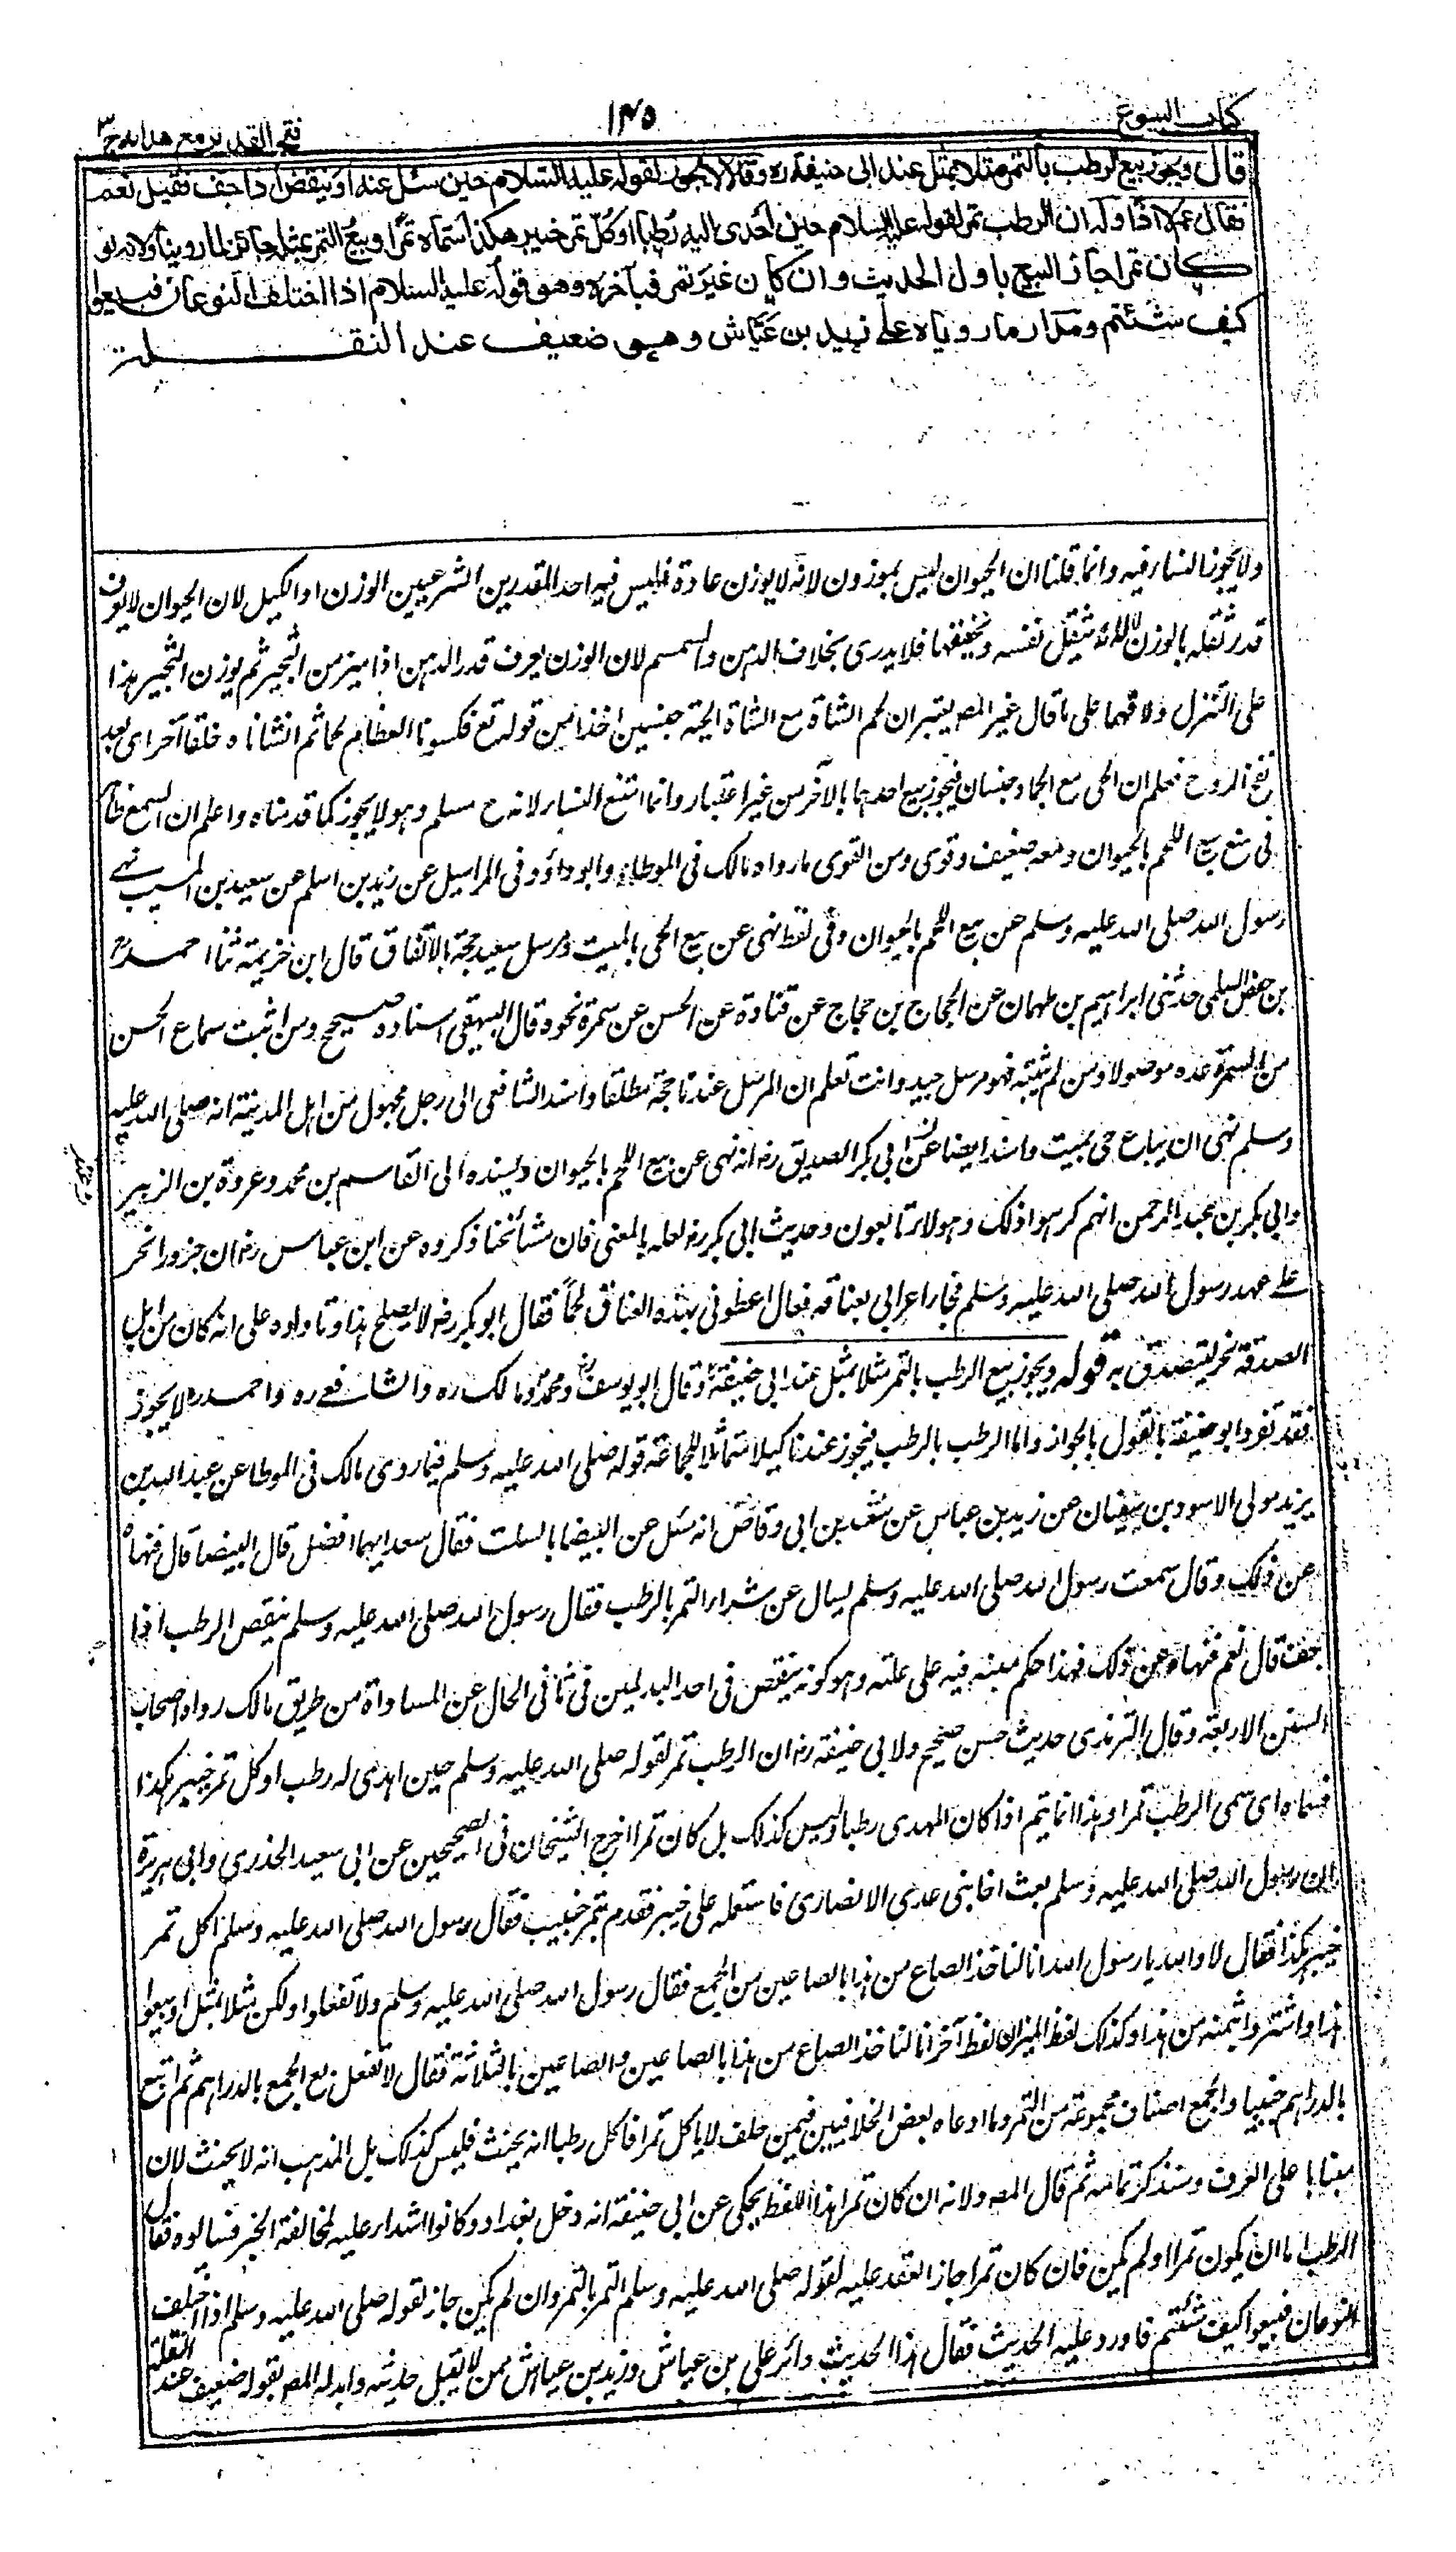 كتاب البيوع
١٤٥
فتح القدير مع هدايه ج ٣
قال ويجوز بيع الرطب بالتمر مثلا بمثل عند ابى حنيفة ره وقالا لا يجوز لقوله عليه السلام حين سئل عنه اوينقض اذا جف فقيل نعم
فقال عم لا اذا وله ان الرطب تمر لقوله عليه السلام حين أهدى اليه رطبا اوكل تمر خيبر هكذا سماه تمرا وبيع التمر بمثله جائز لما روينا ولانه لو
كان تمرا جاز البيع باول الحديث وان كان غير تمر فبآخره وهو قوله عليه السلام اذا اختلف النوعان فبيعوا
كيف شئتم ومدار ما روياه على زيد بن عياش وهو ضعيف عند النقلة
ولا يجوز النسار فيه وانما قلنا ان الحيوان ليس بموزون لانه لا يوزن عادة فليس فيه احد المقدرين الشرعيين الوزن او الكيل لان الحيوان لا يعرف
قدر ثقله بالوزن لانه يثقل نفسه ويخففها فلا يدرى بخلاف الدهن والسمسم لان الوزن يعرف قدر الدهن اذا ميز من الثجير ثم يوزن الثجير هذا
على التنزل ولاقهما على ما قال غير المصـ يعتبران لحم الشاة مع الشاة الحية جنسين اخذا من قوله تع فكسونا العظام لحما ثم انشاناه خلقا آخر اى بعد
نفخ الروح فعلم ان الحى مع الجماد جنسان فيجوز بيع احدهما بالآخر من غير اعتبار وانما امتنع النسار لانه ح مسلم وهو لا يجوز كما قدمناه واعلم ان السمع ظاهر
فى منع بيع اللحم بالحيوان ومنه ضعيف وقوى ومن القوى ما رواه مالك فى الموطا وابو داؤد فى المراسيل عن زيد بن اسلم عن سعيد بن المسيب نهى
رسول الله صلى الله عليه وسلم عن بيع اللحم بالحيوان وفى لفظ نهى عن بيع الحى بالميت ومرسل سعيد حجة بالاتفاق قال ابن خزيمة ثنا احمد
بن حفص السلمى حدثنى ابراهيم بن طهمان عن الحجاج بن حجاج عن قتادة عن الحسن عن سمرة نحوه قال البيهقى اسناده صحيح ومن اثبت سماع الحسن
من السمرة عده موصولا ومن لم يثبته فهو مرسل جيد وانت تعلم ان المرسل عندنا حجة مطلقا واسند الشافعى الى رجل مجهول من اهل المدينة انه صلى الله عليه
وسلم نهى ان يباع حى بميت واسند ايضا عن ابى بكر الصديق رضـ انه نهى عن بيع اللحم بالحيوان وبسنده الى القاسم بن محمد وعروة بن الزبير
وابى بكر بن عبد الرحمن انهم كرهوا ذلك وهولاء تابعون وحديث ابى بكر رضـ لعله بالمعنى فان مشائخنا ذكروه عن ابن عباس رضـ ان جزورا نحر
على عهد رسول الله صلى الله عليه وسلم فجاء اعرابى بعناقه فقال اعطونى بهذه العناق لحما فقال ابو بكر رضـ لا يصلح هذا وتاولوه على انه كان من ابل
الصدقة نحر ليتصدق به قوله ويجوز بيع الرطب بالتمر مثلا بمثل عند ابى حنيفة وقال ابو يوسف ومحمد ومالك ره والشافعى ره واحمد ره لا يجوز
فقد تفرد ابو حنيفة بالقول بالجواز واما الرطب بالرطب فيجوز عندنا كيلا متماثلا للجماعة قوله صلى الله عليه وسلم فيما روى مالك فى الموطا عن عبد الله بن
يزيد مولى الاسود بن سفيان عن زيد بن عياش عن سعد بن ابى وقاص انه سئل عن البيضا بالسلت فقال سعد ايهما افضل قال البيضا قال فنهاه
عن ذلك وقال سمعت رسول الله صلى الله عليه وسلم يسال عن شراء التمر بالرطب فقال رسول الله صلى الله عليه وسلم ينقص الرطب اذا
جف قال نعم فنهاه عن ذلك فهذا حكم منبه فيه على علته وهو كونه ينقص فى احد البدلين فى ثانى الحال عن المساواة من طريق مالك رواه اصحاب
السنن الاربعة وقال الترمذى حديث حسن صحيح ولابى حنيفة رضـ ان الرطب تمر لقوله صلى الله عليه وسلم حين اهدى له رطب اوكل تمر خيبر هكذا
فسماه اى سمى الرطب تمرا وهذا انما يتم اذا كان المهدى رطبا وليس كذلك بل كان تمرا اخرج الشيخان فى الصحيحين عن ابى سعيد الخدرى وابى هريرة
ان رسول الله صلى الله عليه وسلم بعث اخا بنى عدى الانصارى فاستعمله على خيبر فقدم بتمر جنيب فقال رسول الله صلى الله عليه وسلم اكل تمر
خيبر هكذا فقال لا والله يا رسول الله انا لناخذ الصاع من هذا بالصاعين من الجمع فقال رسول الله صلى الله عليه وسلم ولا تفعلوا ولكن مثلا بمثل او بيعوا
هذا واشتروا بثمنه من هذا وكذلك لفظ الميزان لفظ آخر انا لناخذ الصاع من هذا بالصاعين والصاعين بالثلاثة فقال لا تفعل بع الجمع بالدراهم ثم ابتع
بالدراهم جنيبا والجمع اصناف مجموعة من التمر وما ادعاه بعض الخلافيين فيمن حلف لا ياكل تمرا فاكل رطبا انه يحنث فليس كذلك بل المذهب انه لا يحنث لان
مبناها على العرف وستذكر تمامه ثم قال المصـ ولانه ان كان تمرا هذا اللفظ يحكى عن ابى حنيفة انه دخل بغداد وكانوا اشداء عليه لمخالفته الخبر فسالوه فقال
الرطب اما ان يكون تمرا او لم يكن فان كان تمرا جاز العقد عليه لقوله صلى الله عليه وسلم التمر بالتمر وان لم يكن جاز لقوله صلى الله عليه وسلم اذا اختلف
النوعان فبيعوا كيف شئتم فاورد عليه الحديث فقال هذا الحديث دائر على بن عياش وزيد بن عياش ممن لا يقبل حديثه وابدله المصـ بقوله ضعيف عند النقلة